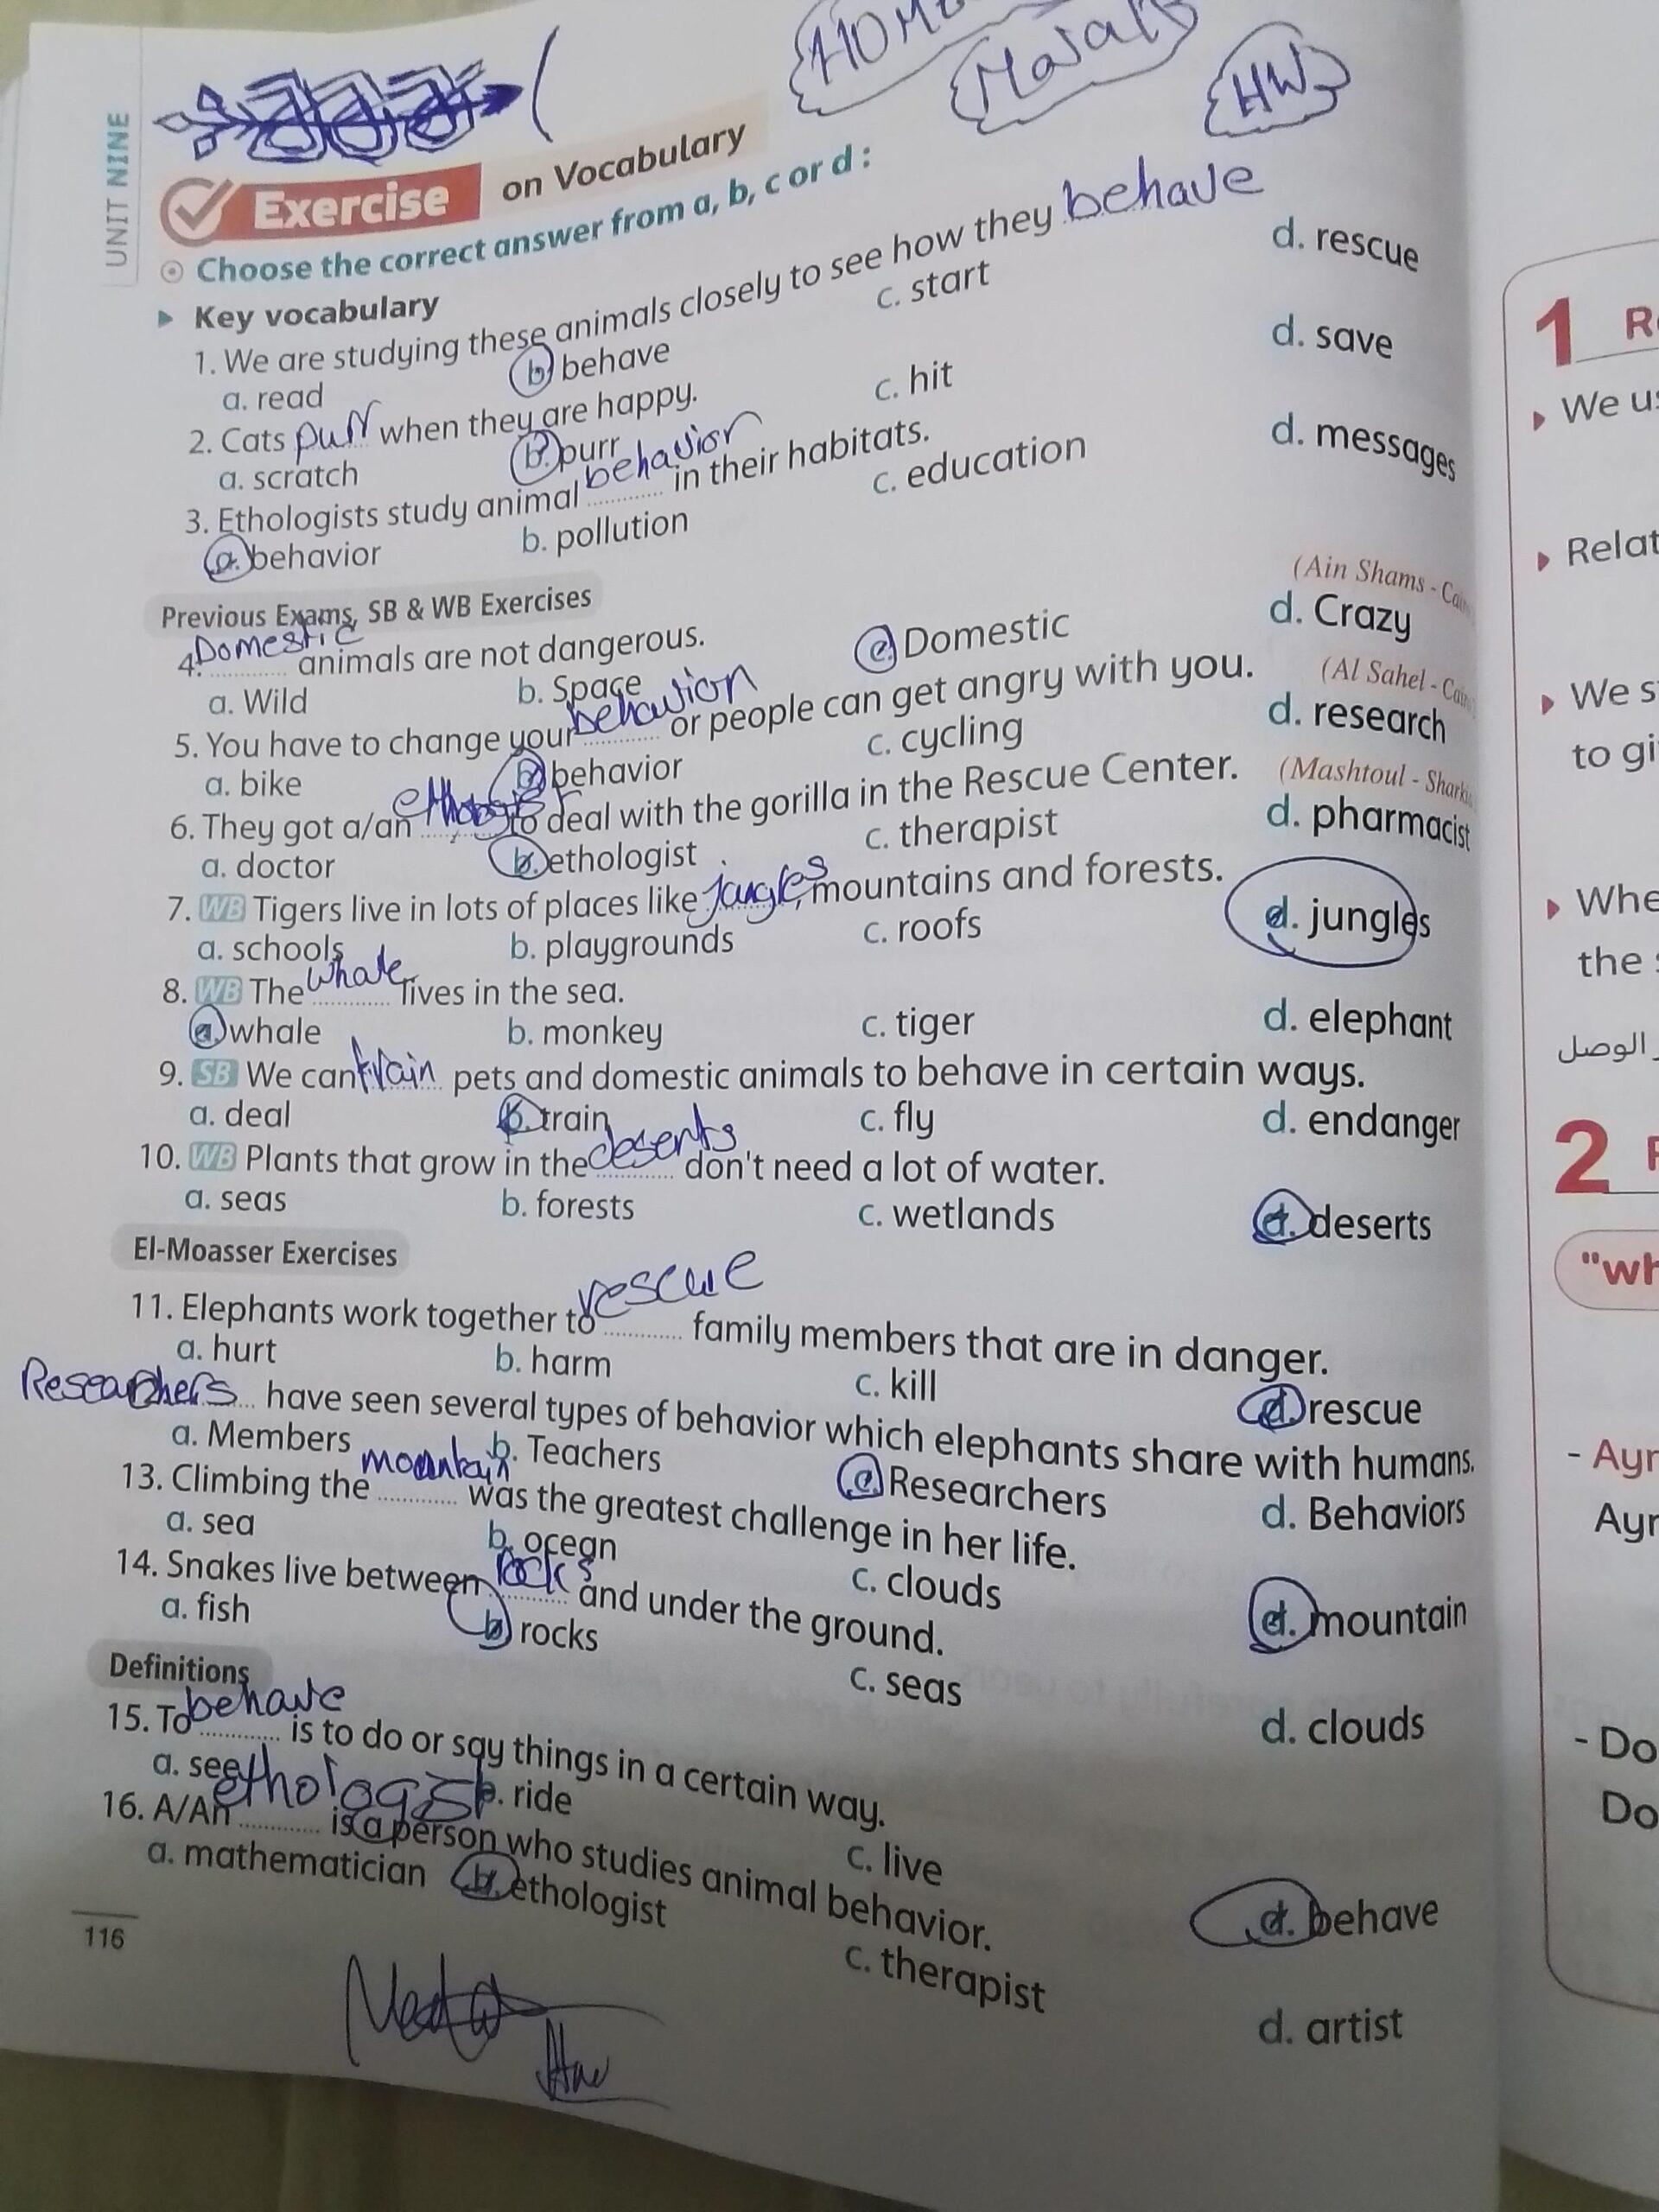 HW
UNIT NINE
Exercise on Vocabulary
Choose the correct answer from a, b, c or d :
Key vocabulary
1. We are studying these animals closely to see how they behave
a. read b. behave c. start d. rescue
2. Cats purr when they are happy.
a. scratch b. purr c. hit d. save
3. Ethologists study animal behavior in their habitats.
a. behavior b. pollution c. education d. messages
Previous Exams, SB & WB Exercises
4. Domestic animals are not dangerous. (Ain Shams -
a. Wild b. Space c. Domestic d. Crazy
5. You have to change your behavior or people can get angry with you. (Al Sahel -
a. bike b. behavior c. cycling d. research
6. They got a/an to deal with the gorilla in the Rescue Center. (Mashtoul -
a. doctor b. ethologist c. therapist d. pharmacist
7. WB Tigers live in lots of places like jungles, mountains and forests.
a. schools b. playgrounds c. roofs d. jungles
8. WB The whale lives in the sea.
a. whale b. monkey c. tiger d. elephant
9. SB We can train pets and domestic animals to behave in certain ways.
a. deal b. train c. fly d. endanger
10. WB Plants that grow in the deserts don't need a lot of water.
a. seas b. forests c. wetlands d. deserts
El-Moasser Exercises
11. Elephants work together to rescue family members that are in danger.
a. hurt b. harm c. kill d. rescue
Researchers have seen several types of behavior which elephants share with humans.
a. Members b. Teachers c. Researchers d. Behaviors
13. Climbing the mountain was the greatest challenge in her life.
a. sea b. ocean c. clouds d. mountain
14. Snakes live between rocks and under the ground.
a. fish b. rocks c. seas d. clouds
Definitions
15. To behave is to do or say things in a certain way.
a. see b. ride c. live d. behave
16. A/An ethologist is a person who studies animal behavior.
a. mathematician b. ethologist c. therapist d. artist
116
1
We
Relat
We s
to gi
Whe
the
الوصل
2
"wh
- Ayr
Ayr
- Do
Do